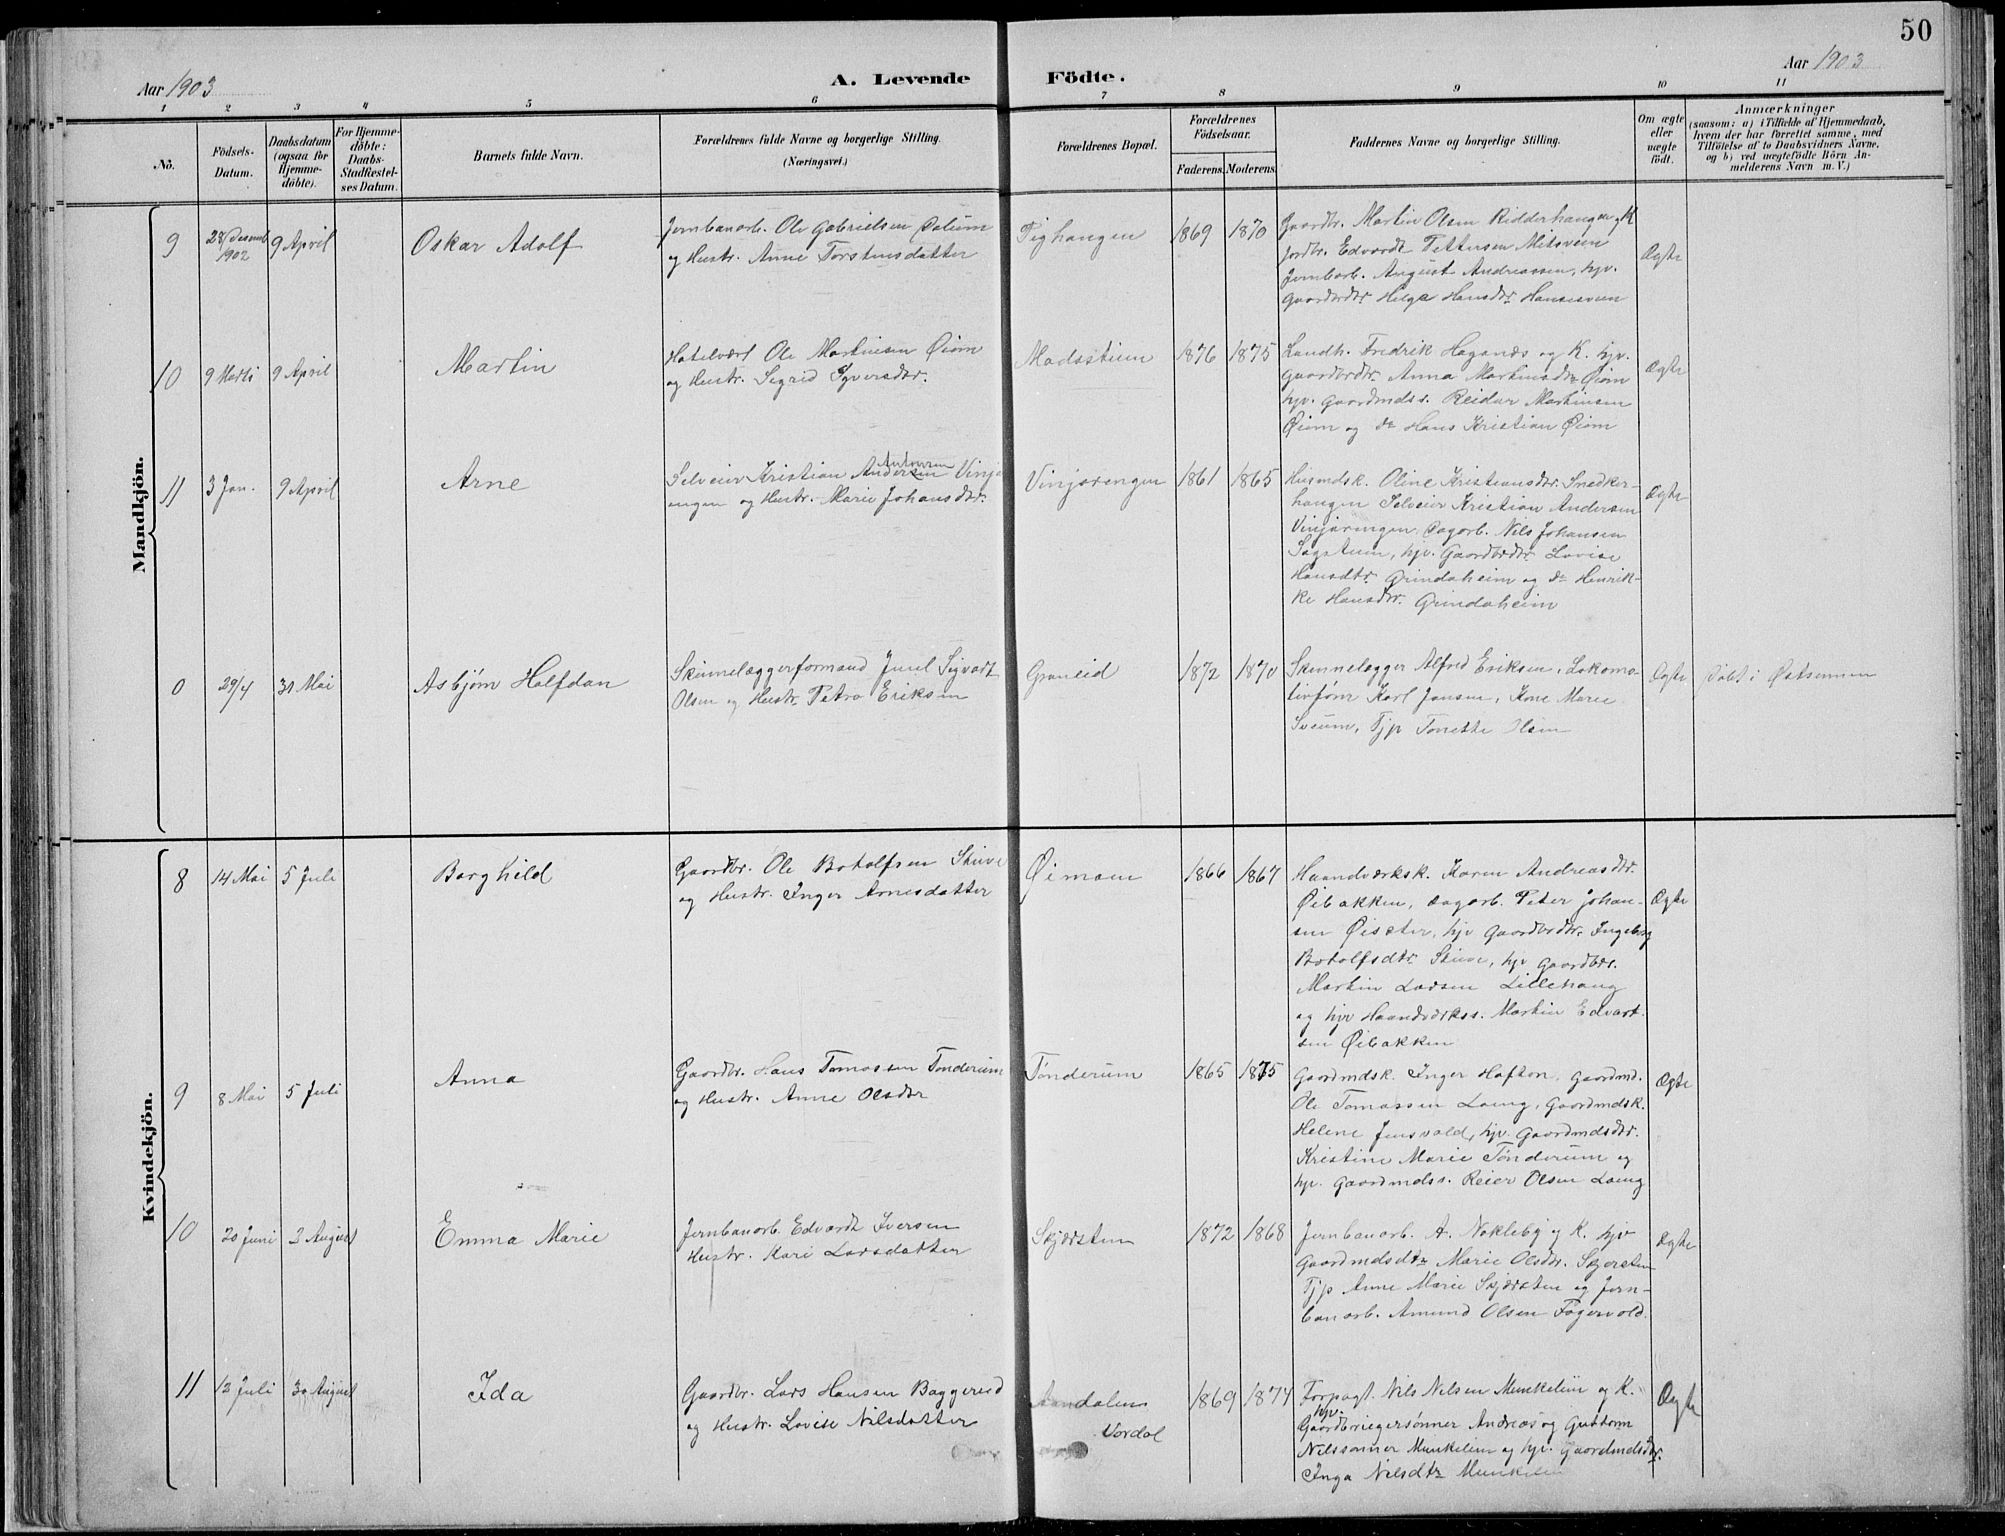 50
Aar 1903
A. Levende Födte.
Aar 1903
1 2 3 4 5 6 7 8 9 10 11
Nō.
Födsels-
Datum.
Daabsdatum
(ogsaa for
Hjemme-
döbte).
For Hjemme-
döbte:
Daabs-
Stadfæstel-
ses Datum.
Barnets fulde Navn.
Forældrenes fulde Navne og borgerlige Stilling.
(Næringsvei.)
Forældrenes Bopæl.
Forældrenes
Födselsaar.
Faderens. Moderens.
Faddernes Navne og borgerlige Stilling.
Om ægte
eller
uægte
födt.
Anmærkninger
(saasom: a) i Tilfælde af Hjemmedaab,
hvem der har forrettet samme, med
Tilföielse af to Daabsvidners Navne,
og b) ved uægtefödte Börn An-
melderens Navn m. V.)
Mandkjön.
9
28/desemb
1902
9 April
Oskar Adolf
Jernbanarb. Ole Gabrielsen Dalum
og Hustr. Anne Torstensdatter
Tighaugen
1869 1870
Gaardbr. Martin Olsen Ridderhaugen og K
Jordbr. Edvardt Pettersen Mitsveen
Jernbarb. August Andreassen, hjv.
Gaardbrdtr. Helga Hansdtr. Hansesveen
Ægte
10
9 Marts
9 April
Martin
Hotelvært Ole Martinsen Øiom
og Hustr. Sigrid Syversdtr.
Madsstuen
1876 1875
Landh. Fredrik Haganæs og K. hjv.
Gaardbrdtr. Anna Martinsdtr Øiom
hjv. Gaardmdss. Reidar Martinsen
Øiom og do Hans Kristian Øiom
Ægte
11
3 Jan.
9 April
Arne
Antonsen
Selveier Kristian Andersen Vinja-
engen og Hustr. Marie Johansdtr.
Vinjarengen
1861 1865
Husmdsk. Oline Kristiansdtr. Snedker-
haugen Selveier Kristian Andersen
Vinjarengen, Dagarb. Nils Johansen
Sagstuen, hjv. Gaardbrdtr. Lovise
Hansdtr. Grindaheim og do Henrik-
ke Hansdtr. Grindaheim
Ægte
0
29/4
31 Mai
Asbjørn Halfdan
Skinnelæggerformand Juul Sigvart
Olsen og Hustr. Petra Eriksen
Graneid
1872 1870
Skinnelægger Alfred Eriksen, Lokomo-
tivfører Karl Jansen, Kone Marie
Sveum, Tjp Tonette Olsen
Ægte
Døbt i Østsinnen
Kvindekjön.
8
14 Mai
5 Juli
Borghild
Gaardbr. Ole Botolfsen Stuve
og Hustr. Inger Arnesdatter
Øimoen
1866 1867
Haandværksk. Karen Andreasdtr.
Øibakken, Dagarb. Peter Johan-
sen Øisæter, hjv Gaardbrdtr. Ingeborg
Botolfsdtr Stuve, hjv Gaardbrs.
Martin Larsen Lillehaug
og hjv Haandværkss. Martin Edvart-
sen Øibakken
Ægte
9
8 Mai
5 Juli
Anna
Gaardbr. Hans Tomassen Tønderum
og Hustr. Anne Olsdtr
Tønderum
1865 1875
Gaardmdsk. Inger Hafton, Gaardmd.
Ole Tomassen Laug, Gaardmdsk.
Helene Jensvold, hjv. Gaardmdsdtr.
Kristine Marie Tønderum og
hjv. Gaardmdss. Reier Olsen Laug
Ægte
10
20 Juni
2 August
Emma Marie
Jernbanarb. Edvardt Iversen
Hustr. Kari Larsdatter
Skjærsten
1872 1868
Jernbanarb. A. Nokleby og K. hjv
Gaardmdsdtr Marie Olsdtr. Skjersten
Tjp Anne Marie Skjærsten og Jern-
banarb. Amund Olsen Fagervold.
Ægte
11
12 Juli
30 August
Ida
Gaardbr. Lars Hansen Baggerud
og Hustr. Lovise Nilsdatter
Aandalens
Vardal
1869 1874
Forpagt. Nils Nilsen Munkeliin og K.
hjv.
Gaardbrugersønner Andreas og Guttorm
Nilssønner Munkelien og hjv. Gaardmdsdtr.
Inga Nilsdtr Munkelien
Ægte